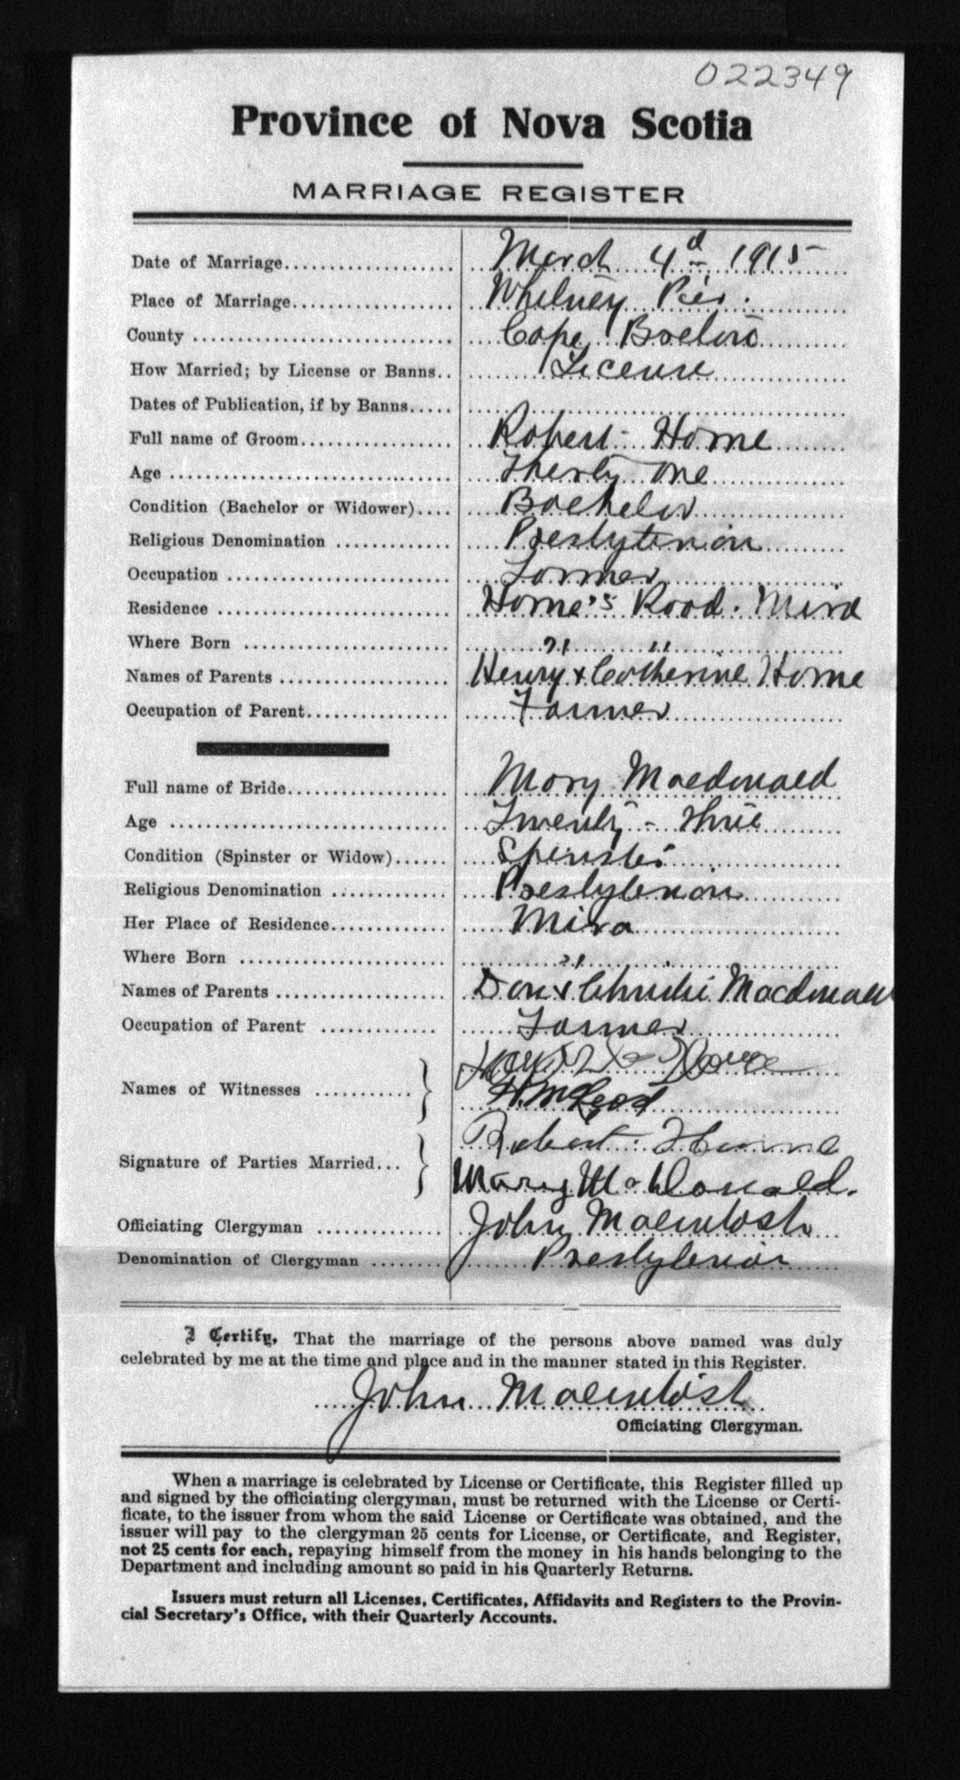 022349
Province of Nova Scotia
MARRIAGE REGISTER
Date of Marriage.................... March 4d 1915
Place of Marriage................... Whitney Pier.
County ............................. Cape Breton
How Married; by License or Banns.. License
Dates of Publication, if by Banns.....
Full name of Groom................. Robert Horne
Age ................................ Thirty one
Condition (Bachelor or Widower).... Bachelor
Religious Denomination ............. Presbyterian
Occupation ......................... Farmer
Residence .......................... Horne's Road. Mira
Where Born ........................ " "
Names of Parents ................... Henry & Catherine Horne
Occupation of Parent................ Farmer
Full name of Bride.................. Mary Macdonald
Age ............................... Twenty - three
Condition (Spinster or Widow)...... Spinster
Religious Denomination ............. Presbyterian
Her Place of Residence............. Mira
Where Born ....................... "
Names of Parents ................... Dan & Christie Macdonald
Occupation of Parent .............. Farmer
Names of Witnesses ........... } Horne
H. McLeod
Signature of Parties Married... } Robert Horne
Mary McDonald.
Officiating Clergyman .............. John Macintosh
Denomination of Clergyman ........ Presbyterian
I Certify, That the marriage of the persons above named was duly
celebrated by me at the time and place and in the manner stated in this Register.
John Macintosh
Officiating Clergyman.
When a marriage is celebrated by License or Certificate, this Register filled up
and signed by the officiating clergyman, must be returned with the License or Certi-
ficate, to the issuer from whom the said License or Certificate was obtained, and the
issuer will pay to the clergyman 25 cents for License, or Certificate, and Register,
not 25 cents for each, repaying himself from the money in his hands belonging to the
Department and including amount so paid in his Quarterly Returns.
Issuers must return all Licenses, Certificates, Affidavits and Registers to the Provin-
cial Secretary's Office, with their Quarterly Accounts.